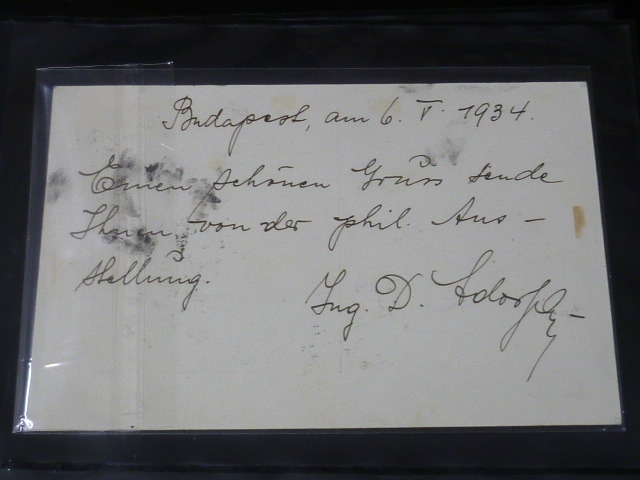 Budapest, am 6. V. 1934.
Einen schönen Gruss sende
Ihnen von der phil. Aus-
stellung.
Ing. D.